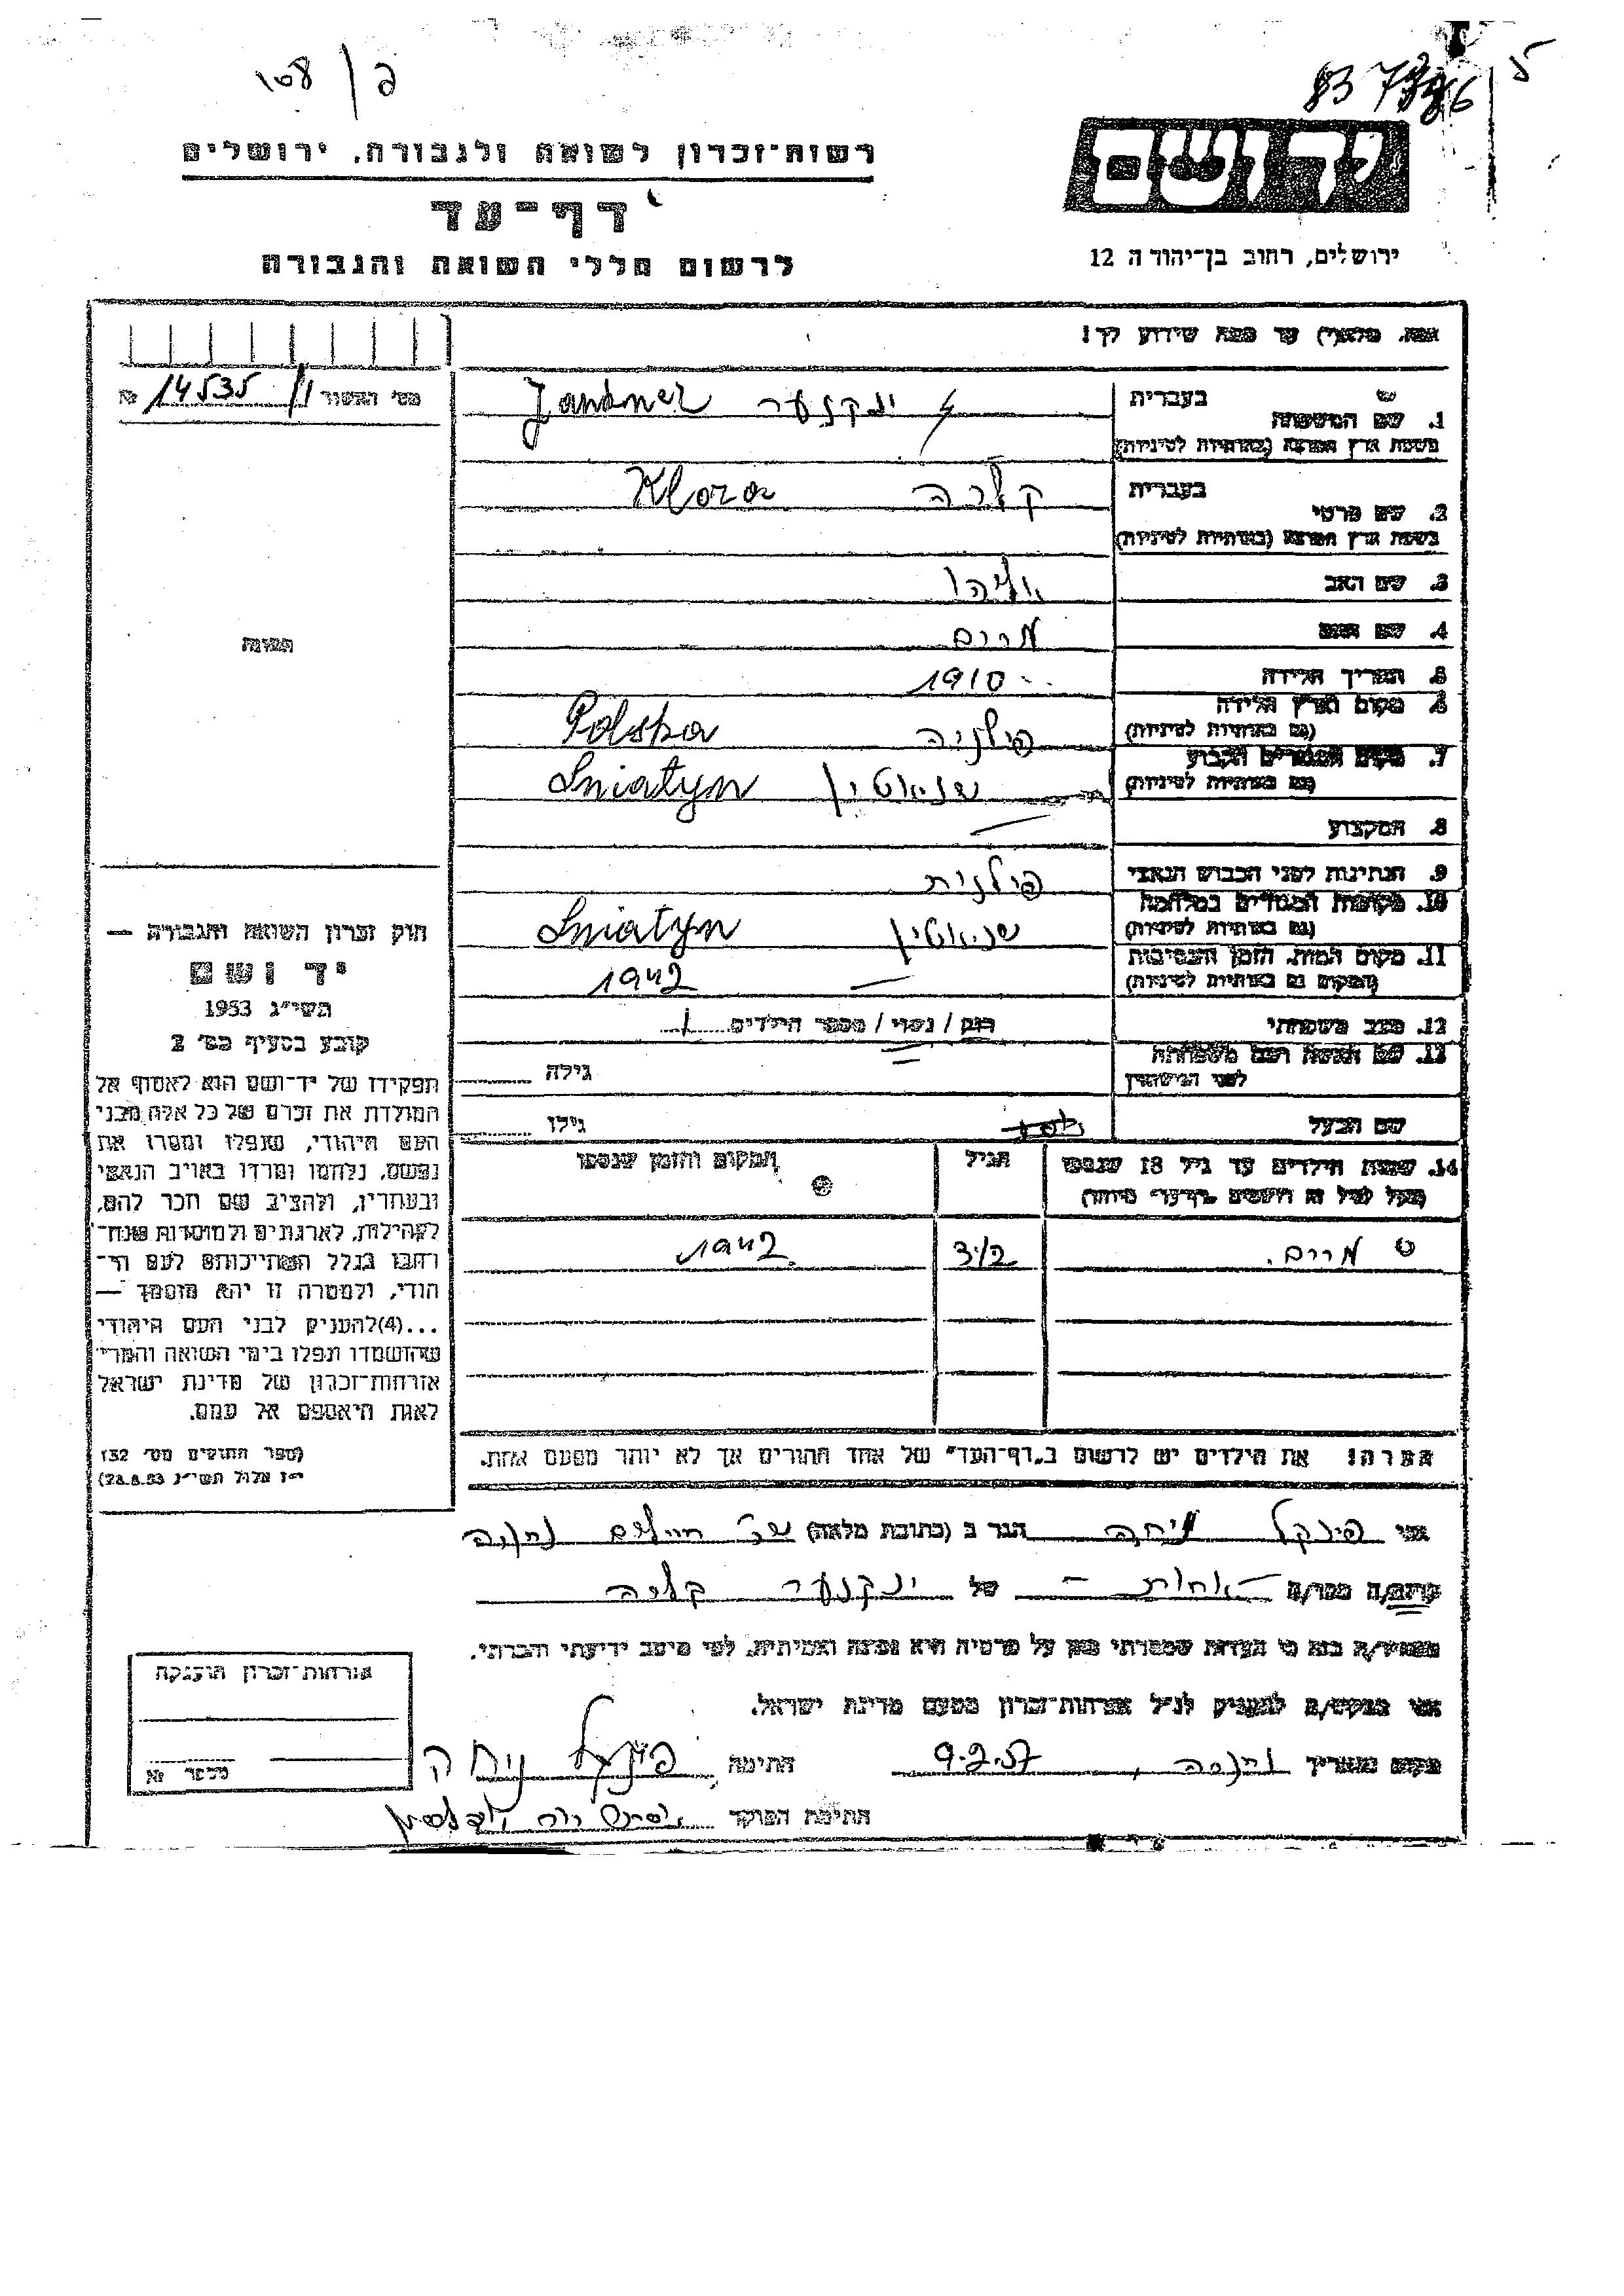 108 / פ
רשות־זכרון לשואה ולגבורה, ירושלים
דף־עד
לרשום חללי השואה והגבורה
ידושם
ירושלים, רחוב בן־יהודה 12
שידוע לך!
מס' האשור 14535/1 №
בעברית
1. שם המשפחה
בשפת ארץ המוצא (באותיות לטיניות)
ינקנער Jankner
בעברית
2. שם פרטי
בשפת ארץ המוצא (באותיות לטיניות)
קלרה Klara
3. שם האב
אליהו
4. שם האם
מרים
5. תאריך הלידה
1910
6. מקום וארץ הלידה
(גם באותיות לטיניות)
פולניה Polska
7. מקום המגורים הקבוע
(גם באותיות לטיניות)
שניאטין Sniatyn
8. המקצוע
9. הנתינות לפני הכבוש הנאצי
פולנית
10. מקומות המגורים במלחמה
(גם באותיות לטיניות)
שניאטין Sniatyn
11. מקום המות, הזמן והנסיבות
(המקום גם באותיות לטיניות)
1942
12. מצב משפחתי
רוק / נשוי / מספר הילדים 1
13. שם האשה ושם משפחתה
לפני הנישואין
גילה
שם הבעל
גילו
14. שמות הילדים עד גיל 18 שנספו
הגיל
המקום והזמן שנספו
מרים. 3½ 1942
תמונה
חוק זכרון השואה והגבורה —
יד ושם
תשי״ג 1953
קובע בסעיף מס' 2
תפקידו של יד־ושם הוא לאסוף אל
המולדת את זכרם של כל אלה מבני
העם היהודי, שנפלו ומסרו את
נפשם, נלחמו ומרדו באויב הנאצי
ובעוזריו, ולהציב שם וזכר להם,
לקהילות, לארגונים ולמוסדות שנח־
רבו בגלל השתייכותם לעם הי־
הודי, ולמטרה זו יהא מוסמך —
...(4)להעניק לבני העם היהודי
שהושמדו ונפלו בימי השואה והמרי
אזרחות־זכרון של מדינת ישראל
לאות היאספם אל עמם.
(ספר החוקים מס' 132
י״ז אלול תשי״ג 28.8.53)
הערה: את הילדים יש לרשום ב„דף־העד״ של אחד ההורים אך לא יותר מפעם אחת.
אני פינקל הגר ב (כתובת מלאה) חיילים נתניה
קרוב/ה מכר/ה אחות של ינקנער קלרה
מצהיר/ה בזה כי העדות שמסרתי כאן על פרטיה היא נכונה ואמיתית, לפי מיטב ידיעתי והכרתי.
אני מבקש/ת להעניק לנ״ל אזרחות־זכרון מטעם מדינת ישראל.
מקום ותאריך נתניה, 9.2.57 חתימה פינקל
חתימת הפוקד
אזרחות־זכרון הוענקה
מספר №